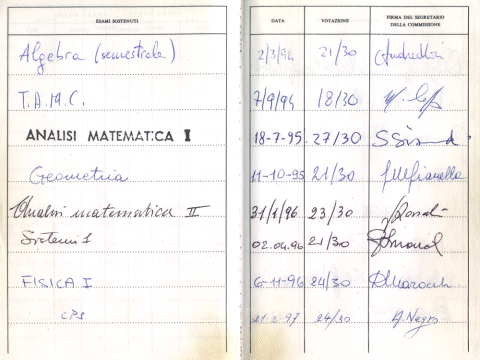 ESAMI SOSTENUTI DATA VOTAZIONE FIRMA DEL SEGRETARIO
DELLA COMMISSIONE
Algebra (semestrale) 2/3/94 21/30
T.A.M.C. 7/9/94 18/30
ANALISI MATEMATICA I 18-7-95 27/30
Geometria 11-10-95 21/30
Analisi matematica II 31/1/96 23/30
Sistemi 1 02.04.96 21/30
FISICA I 6-11-96 24/30
CPS 21.2.97 24/30 A. Negro